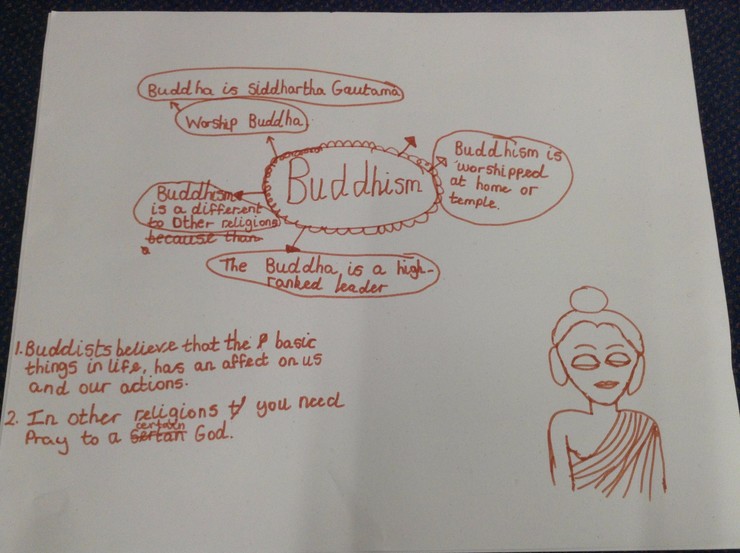 Buddha is Siddhartha Gautama
Worship Buddha
Buddhism
Buddhism is
worshipped
at home or
temple.
Buddhism
is a different
to Other religions
because than
The Buddha is a high-
ranked leader
1. Buddists believe that the basic
things in life, has an affect on us
and our actions.
2. In other religions you need
Pray to a certain God.